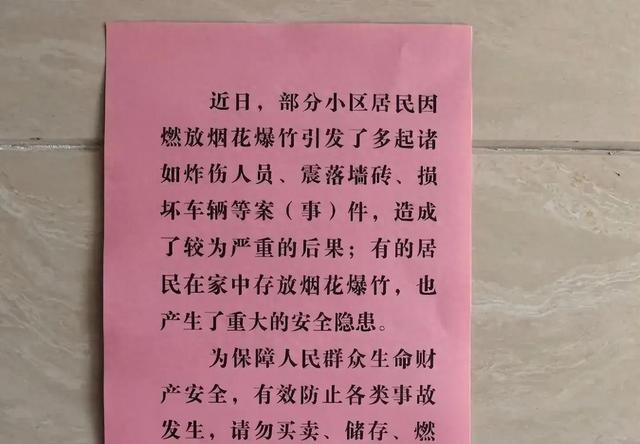 近日，部分小区居民因
燃放烟花爆竹引发了多起诸
如炸伤人员、震落墙砖、损
坏车辆等案（事）件，造成
了较为严重的后果；有的居
民在家中存放烟花爆竹，也
产生了重大的安全隐患。
为保障人民群众生命财
产安全，有效防止各类事故
发生，请勿买卖、储存、燃